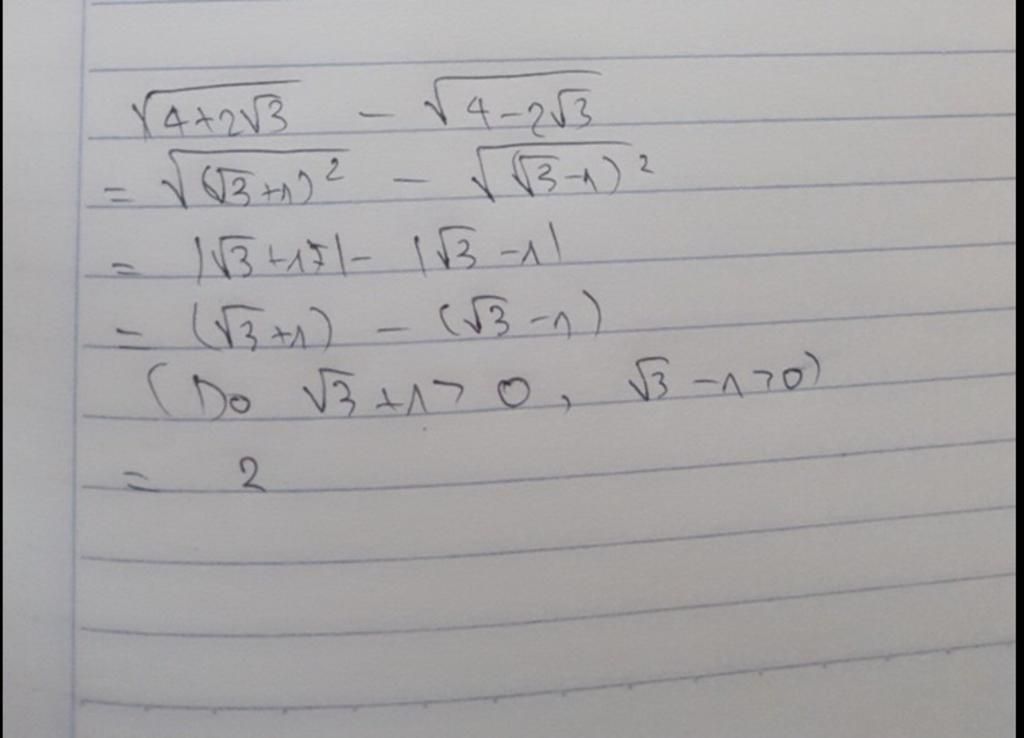 √(4+2√3) - √(4-2√3)
= √((√3+1)²) - √((√3-1)²)
= |√3+1| - |√3-1|
= (√3+1) - (√3-1)
(Do √3+1>0, √3-1>0)
= 2